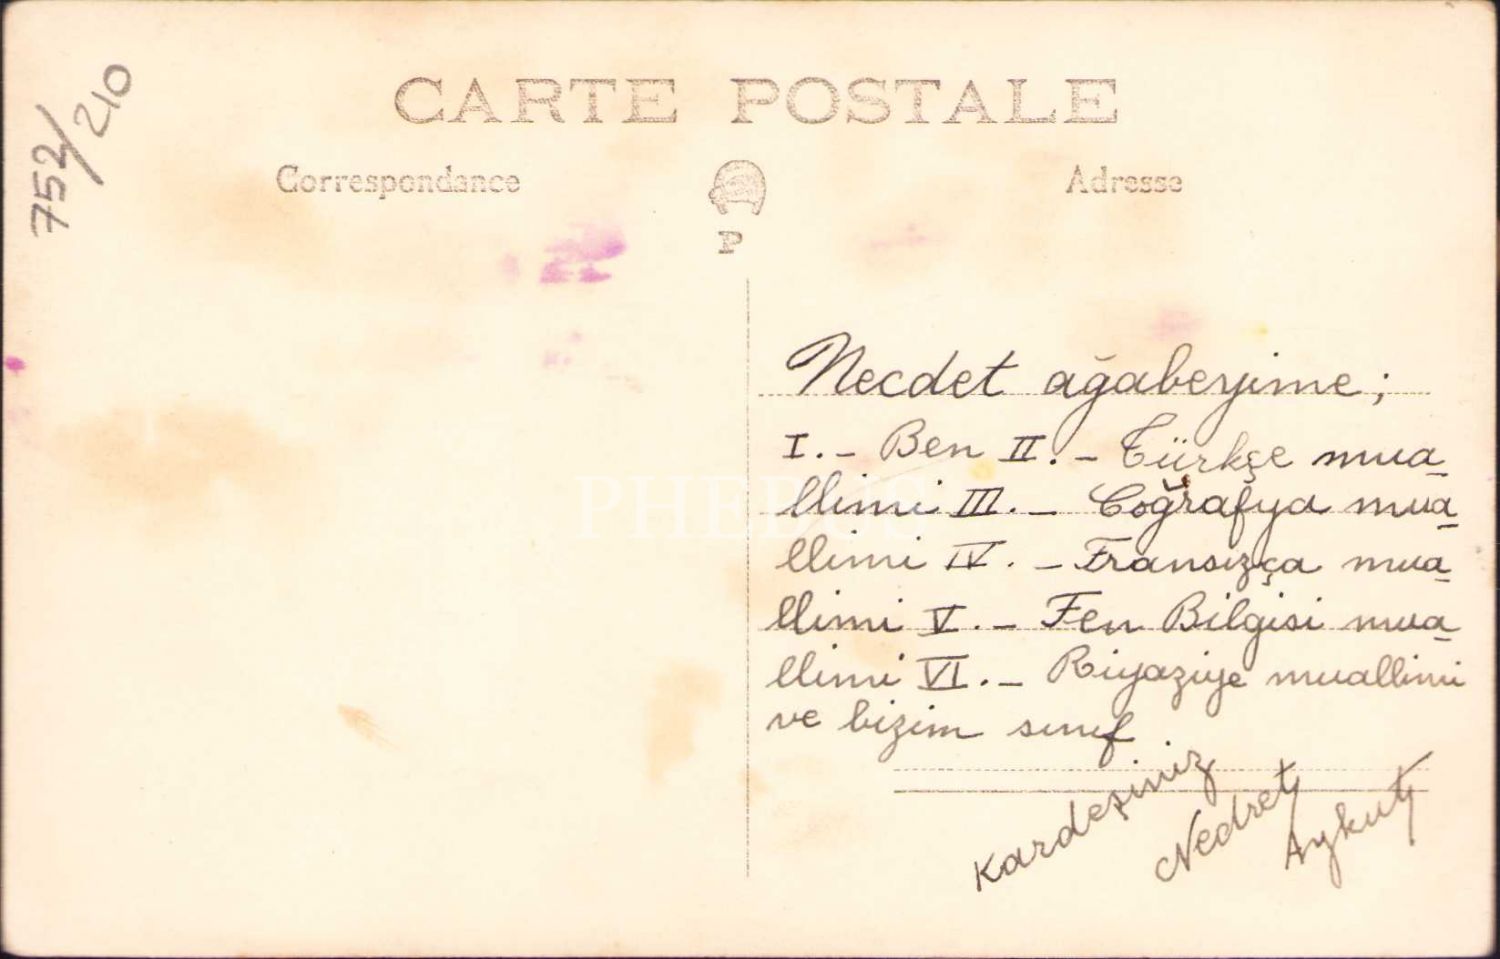 752/210
CARTE POSTALE
Correspondance
Adresse
P
PHEBUS
Necdet ağabeyime;
I.- Ben II.- Türkçe mua
llimi III.- Coğrafya mua
llimi IV.- Fransızça mua
llimi V.- Fen Bilgisi mua
llimi VI.- Riyaziye muallimi
ve bizim sınıf
Kardeşiniz
Nedret
Aykut